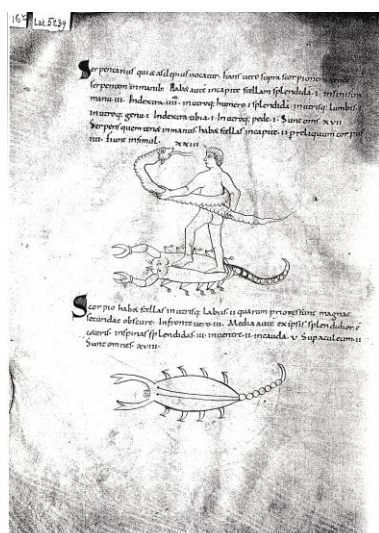 16r Lat 5239
Serpentarius qui & asclepius vocatur. hans vero supra scorpionem tenens
serpentem in manib: Habet aute in capite stellam splendida .i. in sinistra
manu .iii. In dextera .iiii. in utroq: humero .i. splendida. in utrisq: lumbis .i.
in utroq: genu .i. In dextra tibia .i. In utroq: pede .i. Sunt oms xvii
Serpens quem tenet in manus habet stellas in capite .ii. p reliquum corpus
fiunt insimul. xxiii
Scorpio habet stellas in utrisq: labiis .ii. quarum priores sunt magnae
secundae obscure. In fronte vero .iii. Media aute ex ipsis splendidior e
ceteris. in spina splendidas .iii. in ventre .ii. in cauda .v. Sup aculeum .ii.
Sunt omnes xviii.